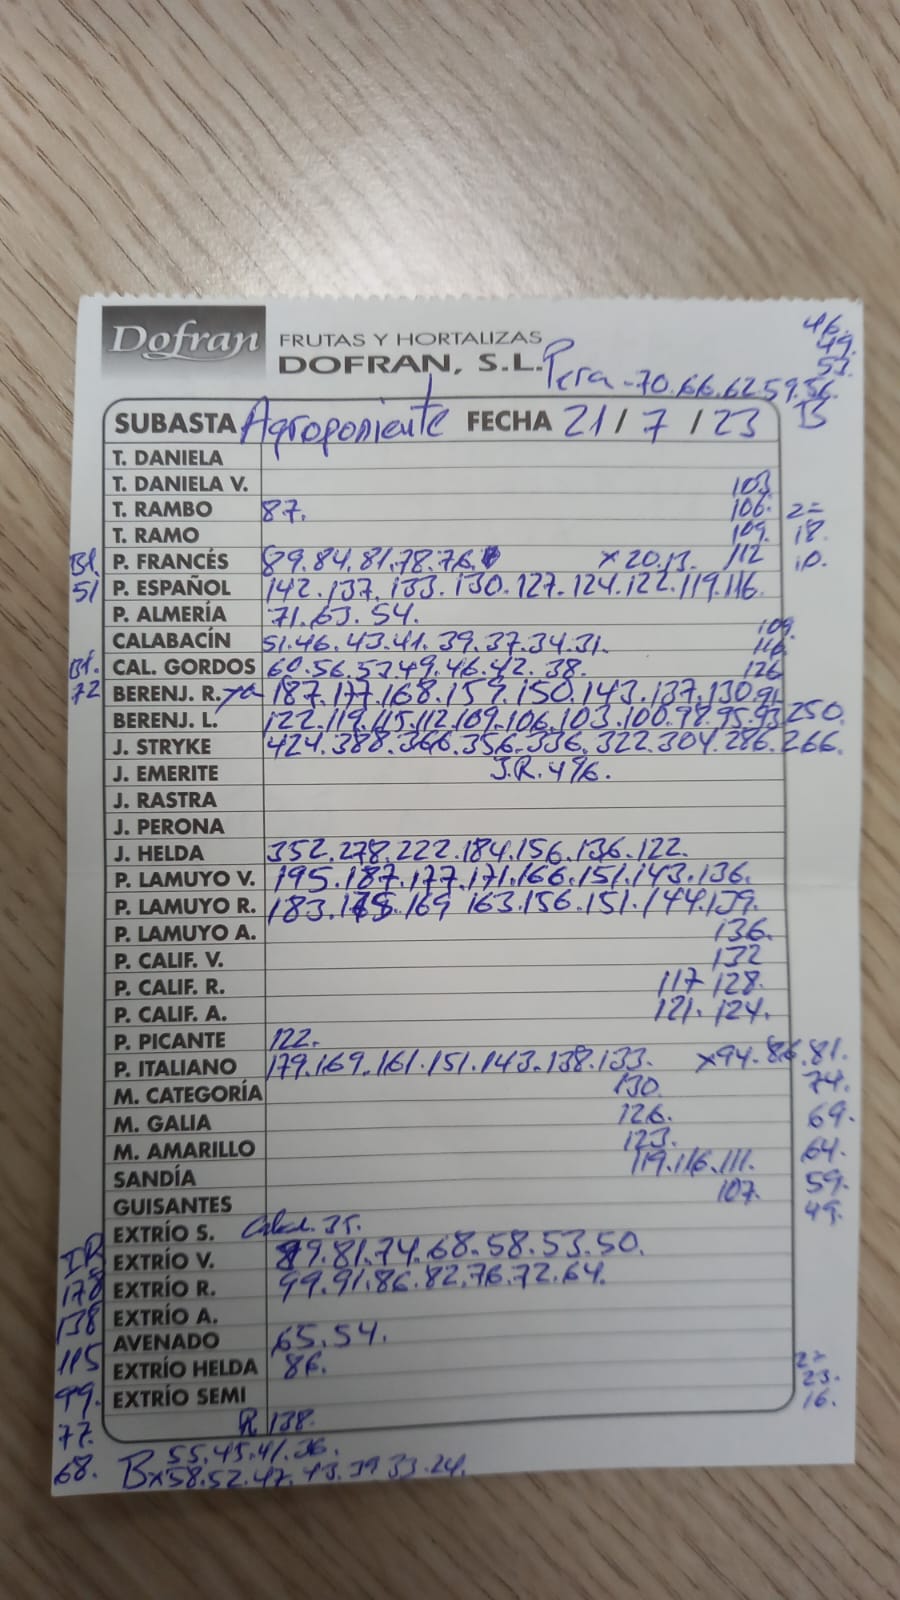 Dofran FRUTAS Y HORTALIZAS
DOFRAN, S.L.
Pera-70.66.62.59.56.
46.
49.
53.
SUBASTA Agroponiente FECHA 21/7/23
T. DANIELA
T. DANIELA V. 103
T. RAMBO 87. 106.
T. RAMO 109. 18.
Bl. P. FRANCÉS 89.84.81.78.76. x20.13. 112 10.
51 P. ESPAÑOL 142.137.133.130.127.124.122.119.116.
P. ALMERÍA 71.63.54.
CALABACÍN 51.46.43.41.39.37.34.31. 109.
116.
Bl. CAL. GORDOS 60.56.53.49.46.42.38. 126
72 BERENJ. R. 187.177.168.159.150.143.137.130.91
BERENJ. L. 122.119.115.112.109.106.103.100.98.95.93 250.
J. STRYKE 424.388.366.356.336.322.304.286.266.
J. EMERITE J.R.496.
J. RASTRA
J. PERONA
J. HELDA 352.278.222.184.156.136.122.
P. LAMUYO V. 195.187.177.171.166.151.143.136.
P. LAMUYO R. 183.175.169 163.156.151.144.139.
P. LAMUYO A. 136.
P. CALIF. V. 132
P. CALIF. R. 117 128.
P. CALIF. A. 121. 124.
P. PICANTE 122.
P. ITALIANO 179.169.161.151.143.138.133. x94.86.81.
M. CATEGORÍA 130. 74.
M. GALIA 126. 69.
M. AMARILLO 123. 64.
SANDÍA 119.116.111. 59.
GUISANTES 107. 49.
EXTRÍO S. 35.
EXTRÍO V. 89.81.74.68.58.53.50.
178 EXTRÍO R. 99.91.86.82.76.72.64.
138 EXTRÍO A.
AVENADO 65.54.
115 EXTRÍO HELDA 86.
23.
99. EXTRÍO SEMI 16.
R 138.
77.
55.45.41.36.
68. Bx58.52.47.43.39 33.24.